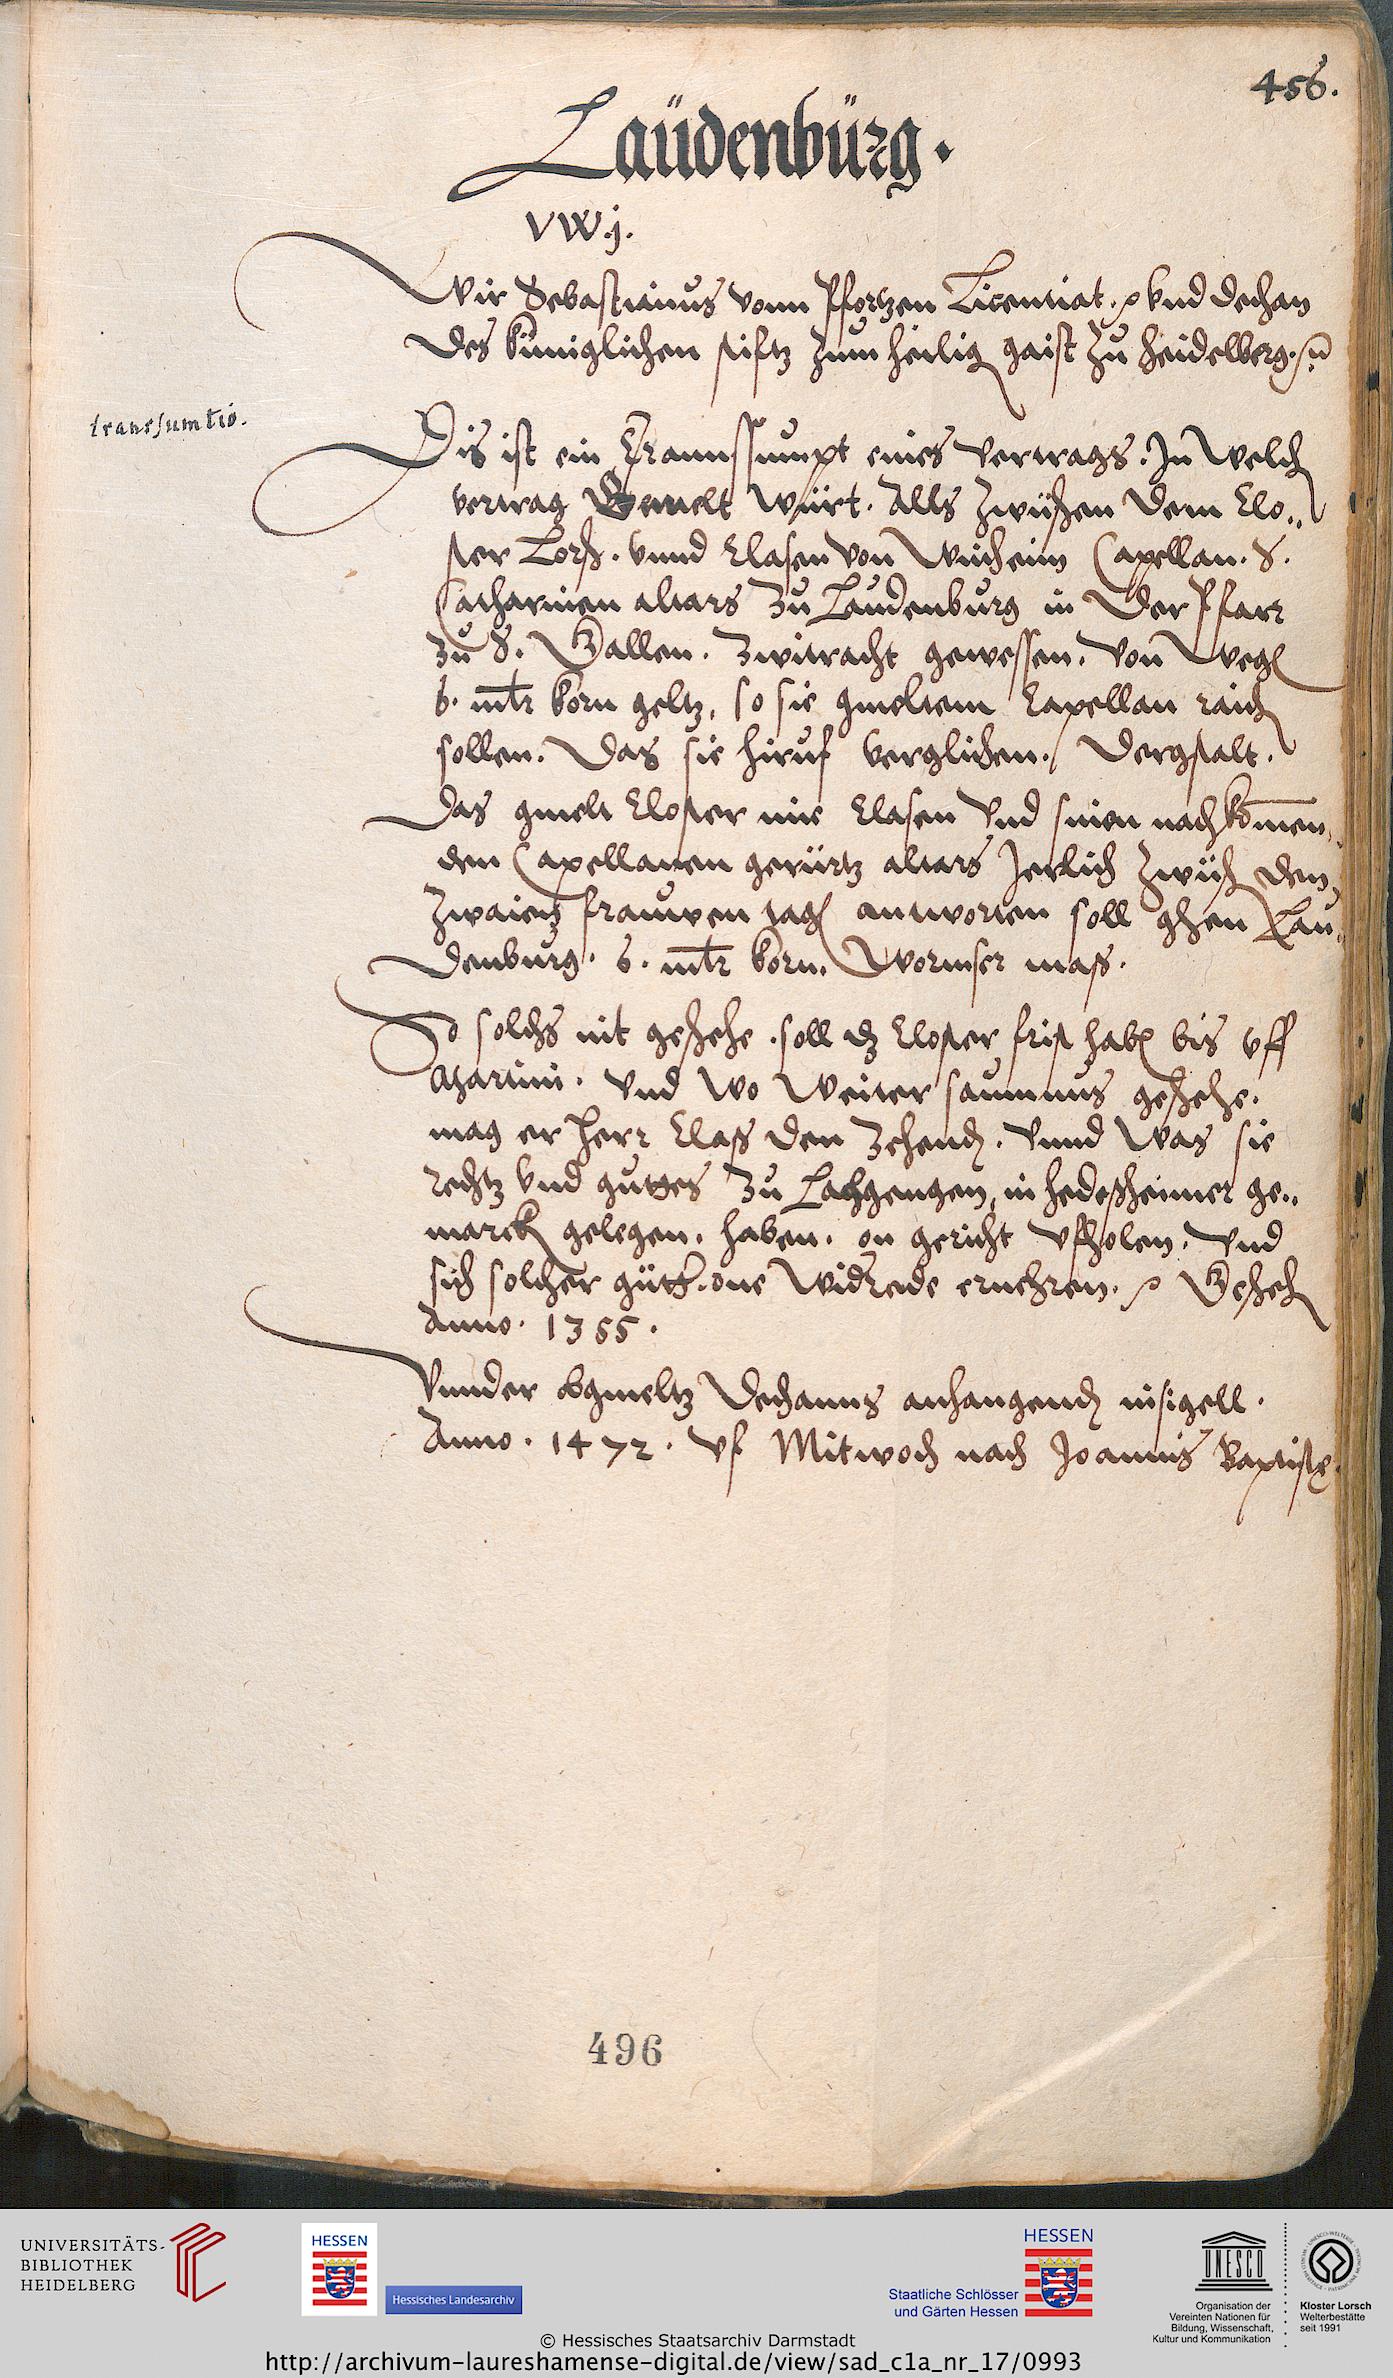 456.
Laüdenbürg.
VW.j.
Wir Sebastianus vonn Pfortzen Licentiat. vnd dechan
des küniglichen stiftz zum heilig gaist zu heidelberg.
transsumtio.
Dis ist ein Trannssumpt eines vertrags. In welch
vertrag Gemelt würt. Alls zwüschen dem Clo„
ster Lorsch. vnnd Clasen von Winheim Capellan. S.
Catharinen altars zu Laudenburg in Der Pfarr
zu S. Gallen. zwitracht gewessen. von weg
6. mltr korn geltz, so sie gmeltem Capellan raich
sollen. Das sie hiruf verglichen. Dergstalt.
Das gmelt Closter nie Clasen vnd sinen nachkomen„
den Capellanen gerürtz altars Jerlich zwüsch den
zwaien frauwen tag antworten soll ghen Lau„
denburg. 6. mltr korn. Wormser mass.
So solchs nit geschehe. soll dz Closter frist hab bis vff
Martini. vnd wo weiter saumnus geschehe.
mag er herr Class den zehend. vnnd was sie
rechtz vnd guttes zu Lachgengen, in hedessheimer ge„
marck gelegen. haben. on gericht vfholen. vnd
sich solcher gütter. one widrede ernehren. Gescheh
Anno. 1355.
Vnnder obgmeltz Dechanns anhangend insigell.
Anno. 1472. vf Mitwoch nach Joannis Baptiste.
496
UNIVERSITÄTS-
BIBLIOTHEK
HEIDELBERG
HESSEN
Hessisches Landesarchiv
HESSEN
Staatliche Schlösser
und Gärten Hessen
UNESCO
Organisation der
Vereinten Nationen für
Bildung, Wissenschaft,
Kultur und Kommunikation
Kloster Lorsch
Welterbestätte
seit 1991
© Hessisches Staatsarchiv Darmstadt
http://archivum-laureshamense-digital.de/view/sad_c1a_nr_17/0993